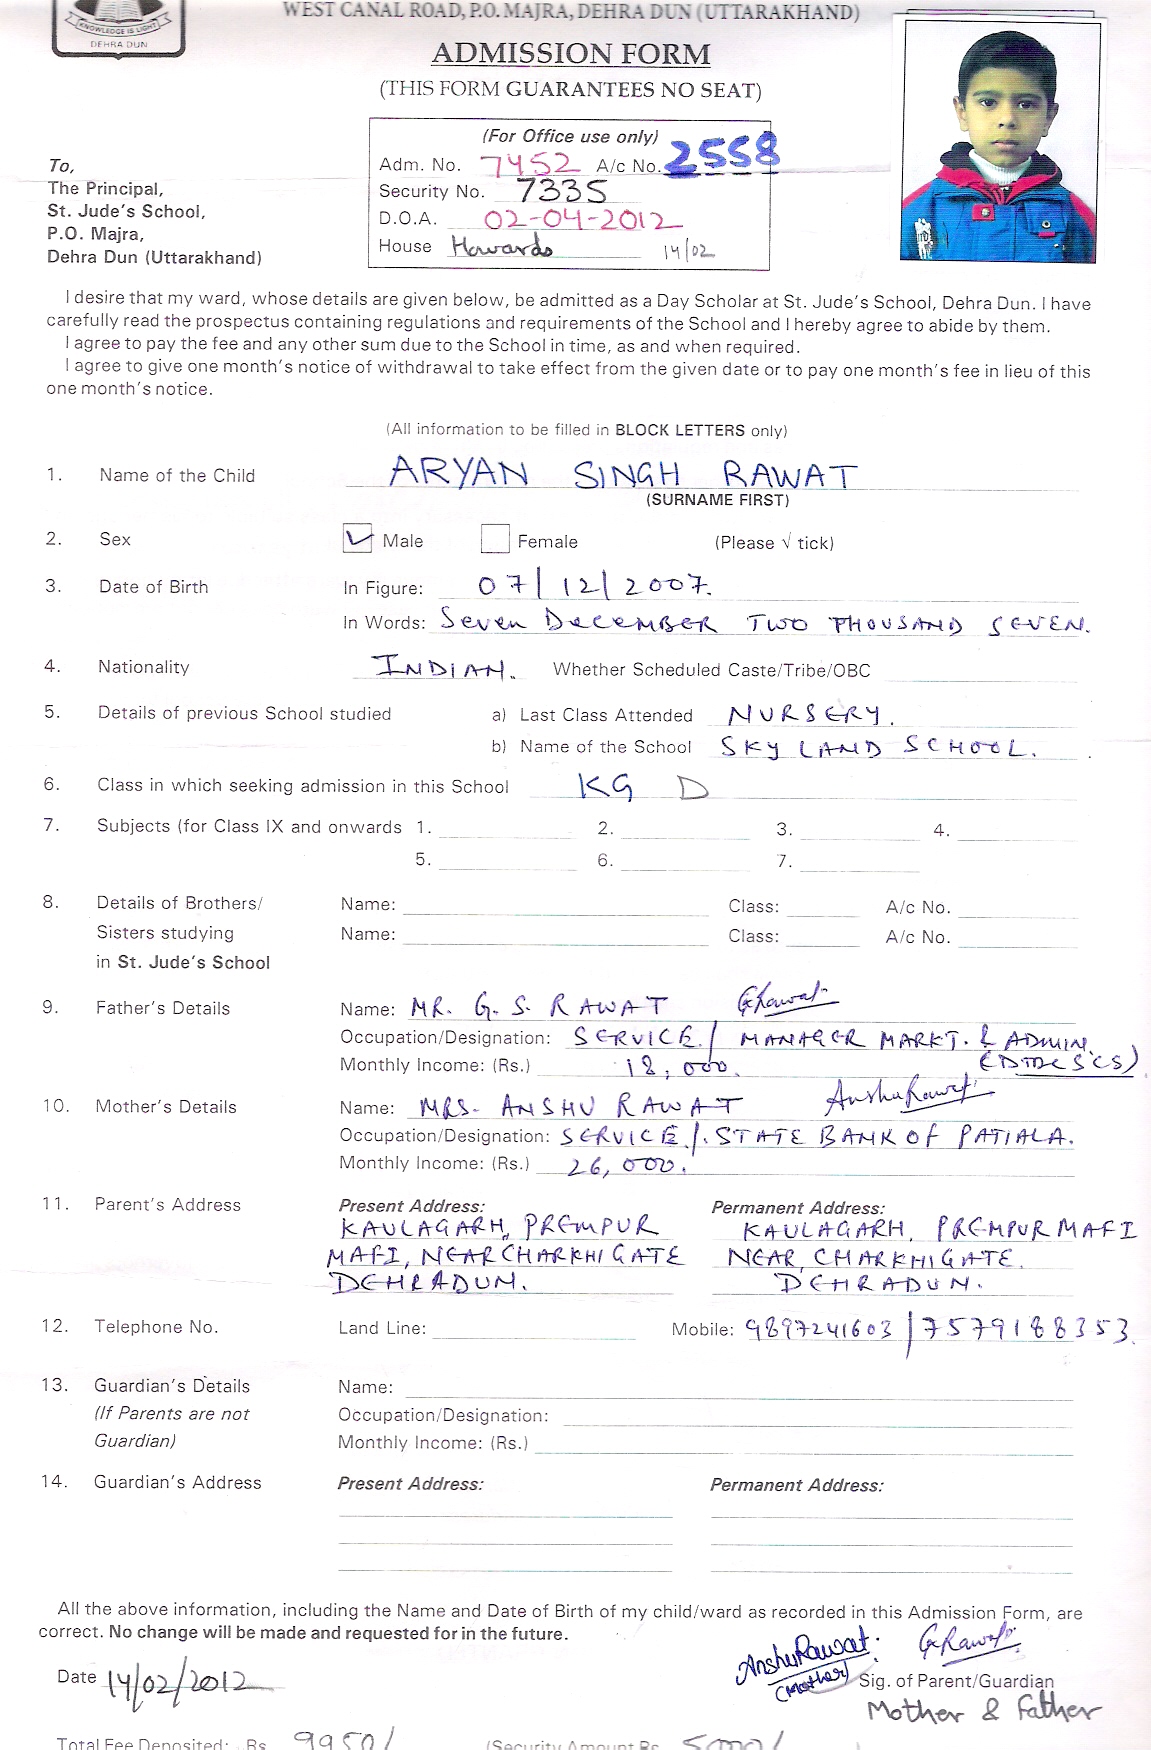 KNOWLEDGE IS LIGHT
DEHRA DUN
WEST CANAL ROAD, P.O. MAJRA, DEHRA DUN (UTTARAKHAND)
ADMISSION FORM
(THIS FORM GUARANTEES NO SEAT)
(For Office use only)
Adm. No. 7452 A/c No. 2558
Security No. 7335
D.O.A. 02-04-2012
House Howards 14/02
To,
The Principal,
St. Jude's School,
P.O. Majra,
Dehra Dun (Uttarakhand)
I desire that my ward, whose details are given below, be admitted as a Day Scholar at St. Jude's School, Dehra Dun. I have
carefully read the prospectus containing regulations and requirements of the School and I hereby agree to abide by them.
I agree to pay the fee and any other sum due to the School in time, as and when required.
I agree to give one month's notice of withdrawal to take effect from the given date or to pay one month's fee in lieu of this
one month's notice.
(All information to be filled in BLOCK LETTERS only)
1. Name of the Child ARYAN SINGH RAWAT
(SURNAME FIRST)
2. Sex Male Female (Please √ tick)
3. Date of Birth In Figure: 07/12/2007.
In Words: Seven DECEMBER TWO THOUSAND SEVEN.
4. Nationality INDIAN. Whether Scheduled Caste/Tribe/OBC
5. Details of previous School studied a) Last Class Attended NURSERY.
b) Name of the School SKY LAND SCHOOL.
6. Class in which seeking admission in this School KG D
7. Subjects (for Class IX and onwards 1. 2. 3. 4.
5. 6. 7.
8. Details of Brothers/ Name: Class: A/c No.
Sisters studying Name: Class: A/c No.
in St. Jude's School
9. Father's Details Name: MR. G. S. RAWAT GSRawat
Occupation/Designation: SERVICE / MANAGER MARKT. & ADMIN.
Monthly Income: (Rs.) 18,000.
10. Mother's Details Name: MRS. ANSHU RAWAT AnshuRawat
Occupation/Designation: SERVICE /. STATE BANK OF PATIALA.
Monthly Income: (Rs.) 26,000.
11. Parent's Address Present Address: Permanent Address:
KAULAGARH, PREMPUR KAULAGARH, PREMPUR MAFI
MAFI, NEAR CHARKHI GATE NEAR, CHARKHI GATE.
DEHRADUN. DEHRADUN.
12. Telephone No. Land Line: Mobile: 9897241603 / 7579188353.
13. Guardian's Details Name:
(If Parents are not Occupation/Designation:
Guardian) Monthly Income: (Rs.)
14. Guardian's Address Present Address: Permanent Address:
All the above information, including the Name and Date of Birth of my child/ward as recorded in this Admission Form, are
correct. No change will be made and requested for in the future.
AnshuRawat. GSRawat
Date 14/02/2012 (Mother) Sig. of Parent/Guardian
Mother & Father
Total Fee Deposited: Rs. 9950/ (Security Amount Rs. 5000/ )